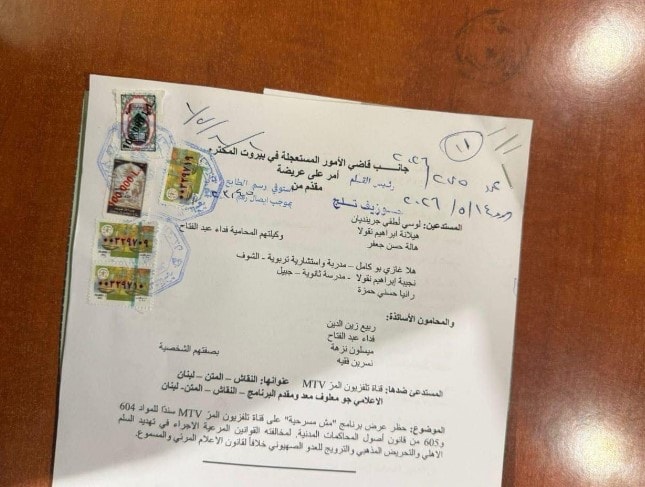 جانب قاضي الأمور المستعجلة في بيروت المحترم
أمر على عريضة
مقدم من
رئيس القلم
جوزيف تلج
يستوفى رسم الطابع
بموجب ايصال رقم
100,000 L.L
٠٠٣٢٩٧١٩
٠٠٣٢٩٧٠٩
٠٠٣٢٩٧١٠
المستدعين: لوسي لطفي جرينديان
هيلانة ابراهيم نقولا وكيلتهم المحامية فداء عبد الفتاح
هالة حسن جعفر
هلا غازي بو كامل – مدربة واستشارية تربوية - الشوف
نجيبة إبراهيم نقولا - مدرسة ثانوية – جبيل
رانيا حسني حمزة
والمحامون الأساتذة:
ربيع زين الدين
فداء عبد الفتاح
ميسلون نزهة
نسرين فقيه
بصفتهم الشخصية
المستدعى ضدها: قناة تلفزيون المر MTV عنوانها: النقاش – المتن – لبنان
الاعلامي جو معلوف معد ومقدم البرنامج – النقاش – المتن- لبنان
الموضوع: حظر عرض برنامج "مش مسرحية" على قناة تلفزيون المر MTV سنداً للمواد 604
و605 من قانون أصول المحاكمات المدنية. لمخالفته القوانين المرعية الاجراء في تهديد السلم
الاهلي والتحريض المذهبي والترويج للعدو الصهيوني خلافاً لقانون الاعلام المرئي والمسموع.